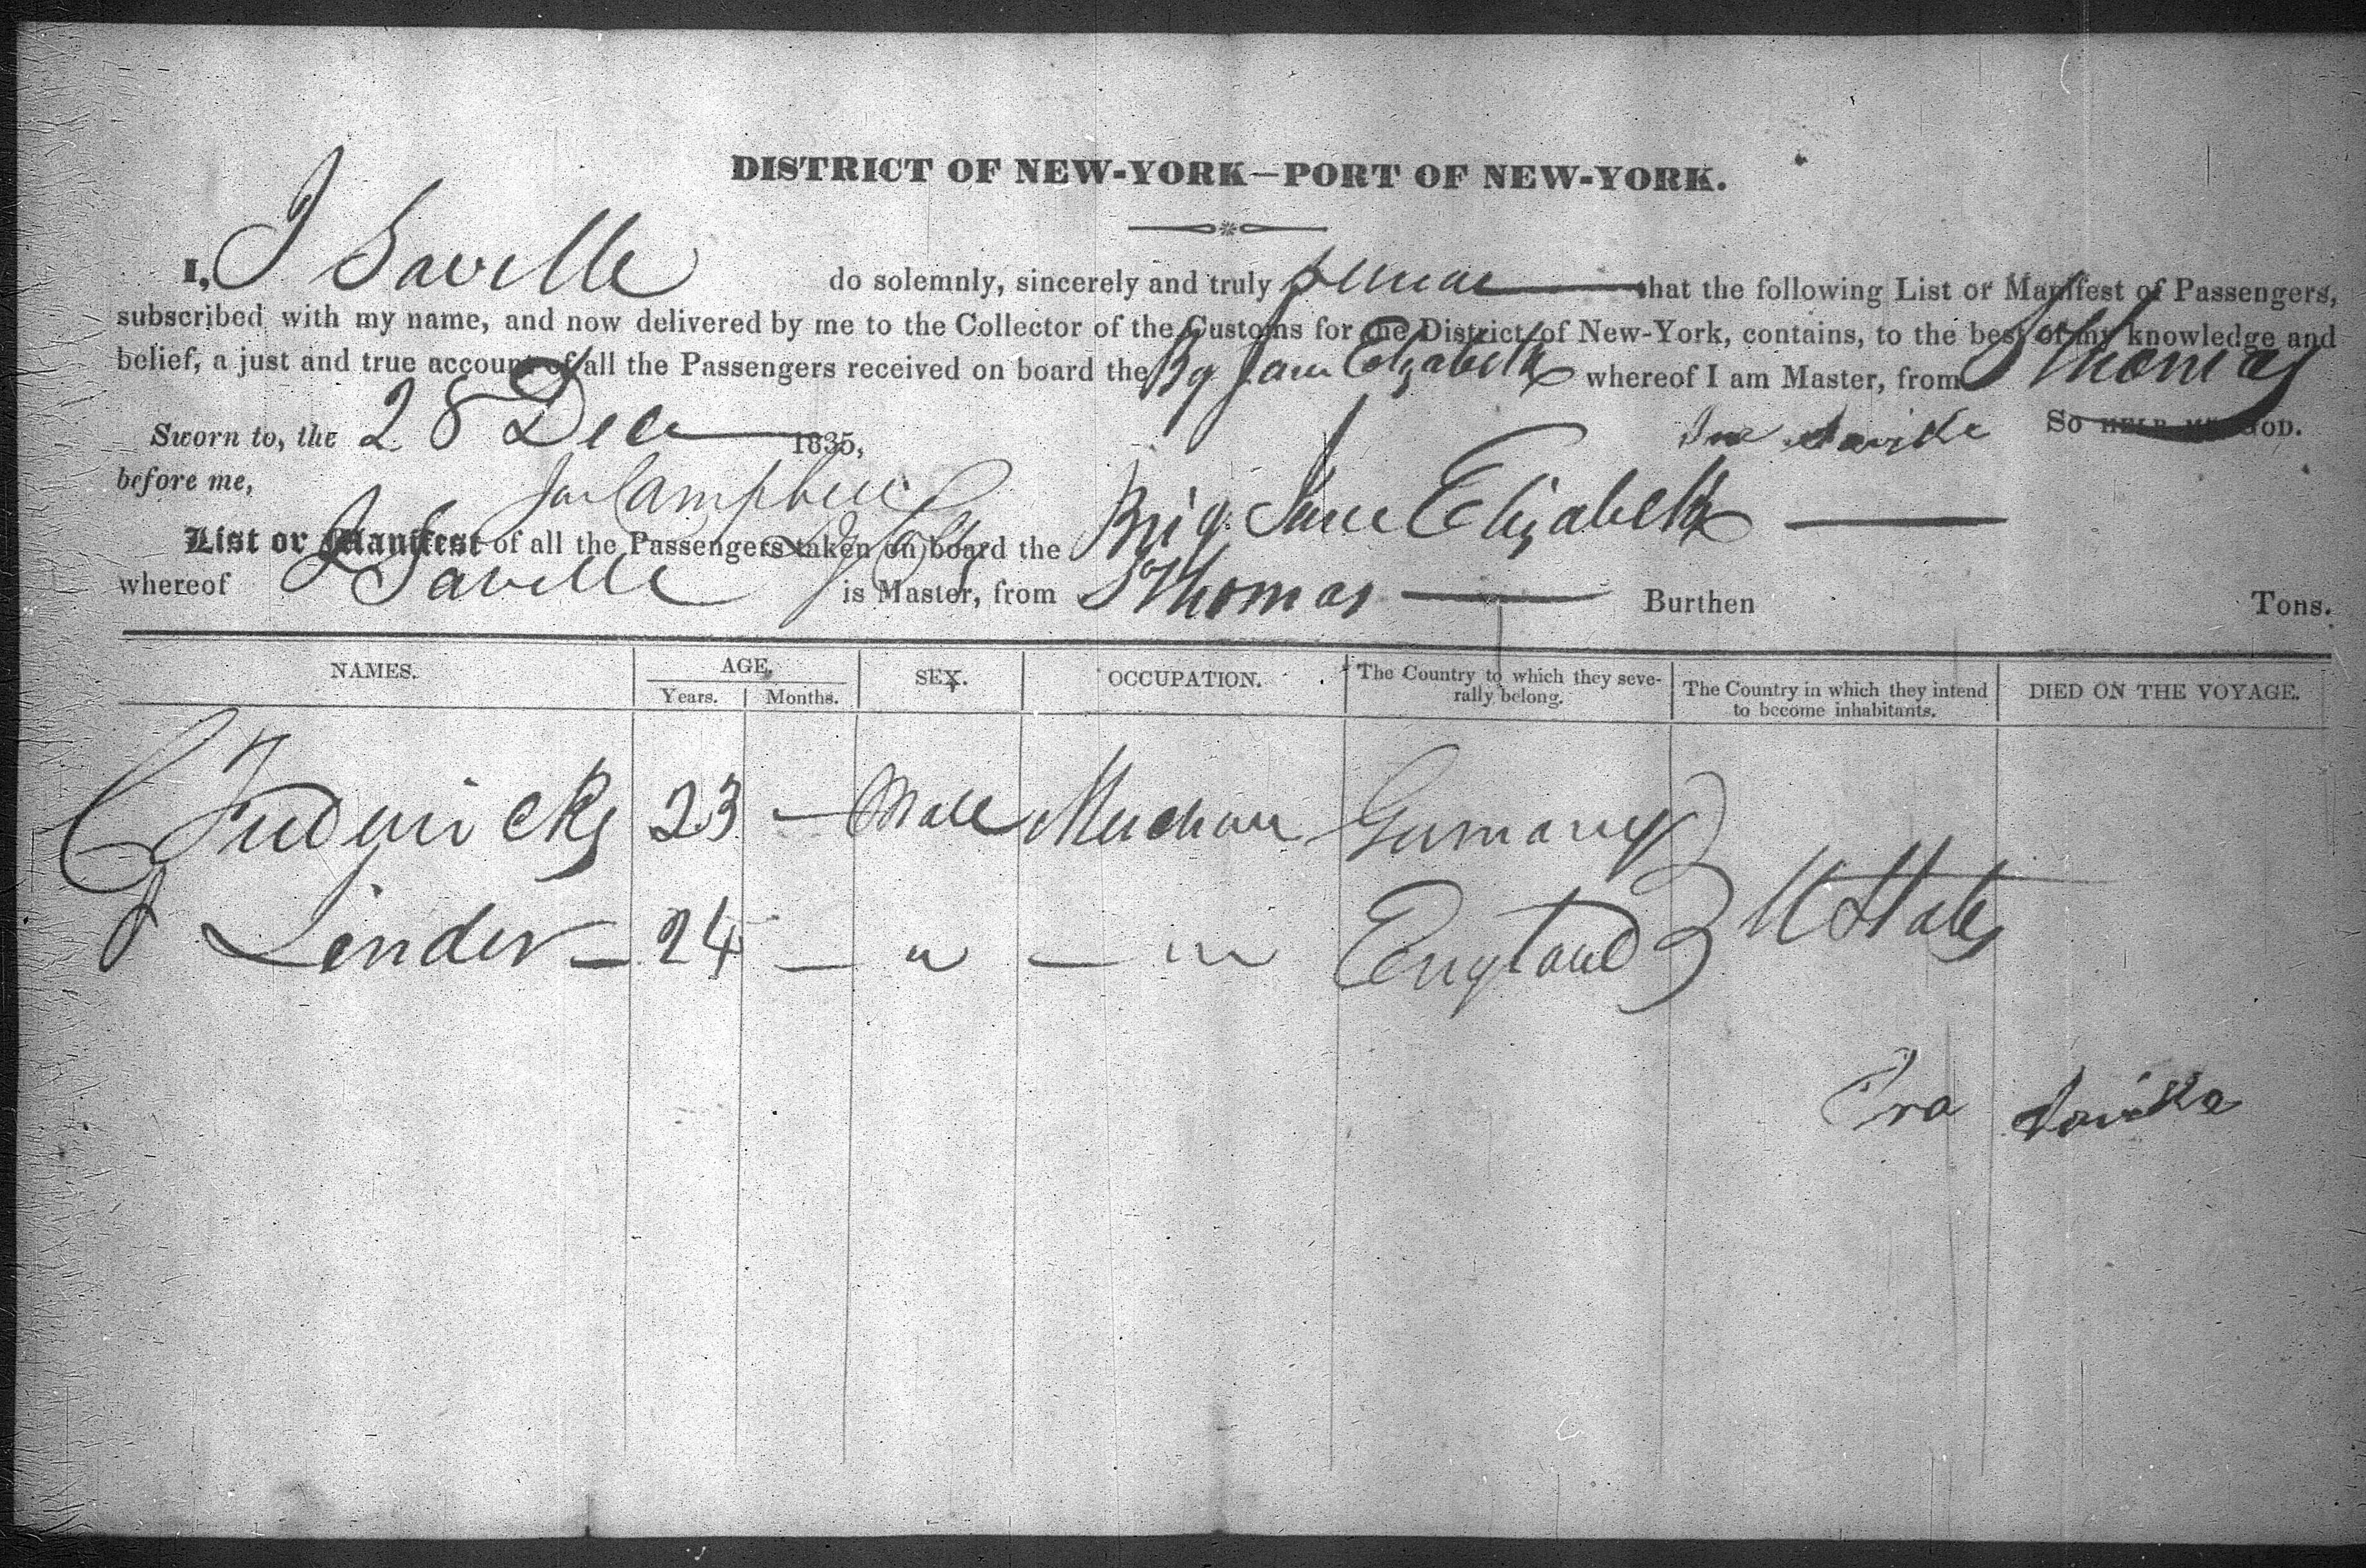 DISTRICT OF NEW-YORK—PORT OF NEW-YORK.
I, I Saville do solemnly, sincerely and truly swear that the following List or Manifest of Passengers,
subscribed with my name, and now delivered by me to the Collector of the Customs for the District of New-York, contains, to the best of my knowledge and
belief, a just and true account of all the Passengers received on board the Bg Jane Elizabeth whereof I am Master, from St Thomas
Sworn to, the 28 Dec 1835, Ira Saville So HELP ME GOD.
before me, Campbell
List or Manifest of all the Passengers taken on board the Brig Jane Elizabeth
whereof I Saville is Master, from St Thomas Burthen Tons.
NAMES. AGE. SEX. OCCUPATION. The Country to which they seve-rally belong. The Country in which they intend to become inhabitants. DIED ON THE VOYAGE.
Years. Months.
C Fredericks 23 — Male Merchan Germany
J Linder — 24 — " — " England U States
Ira Saville